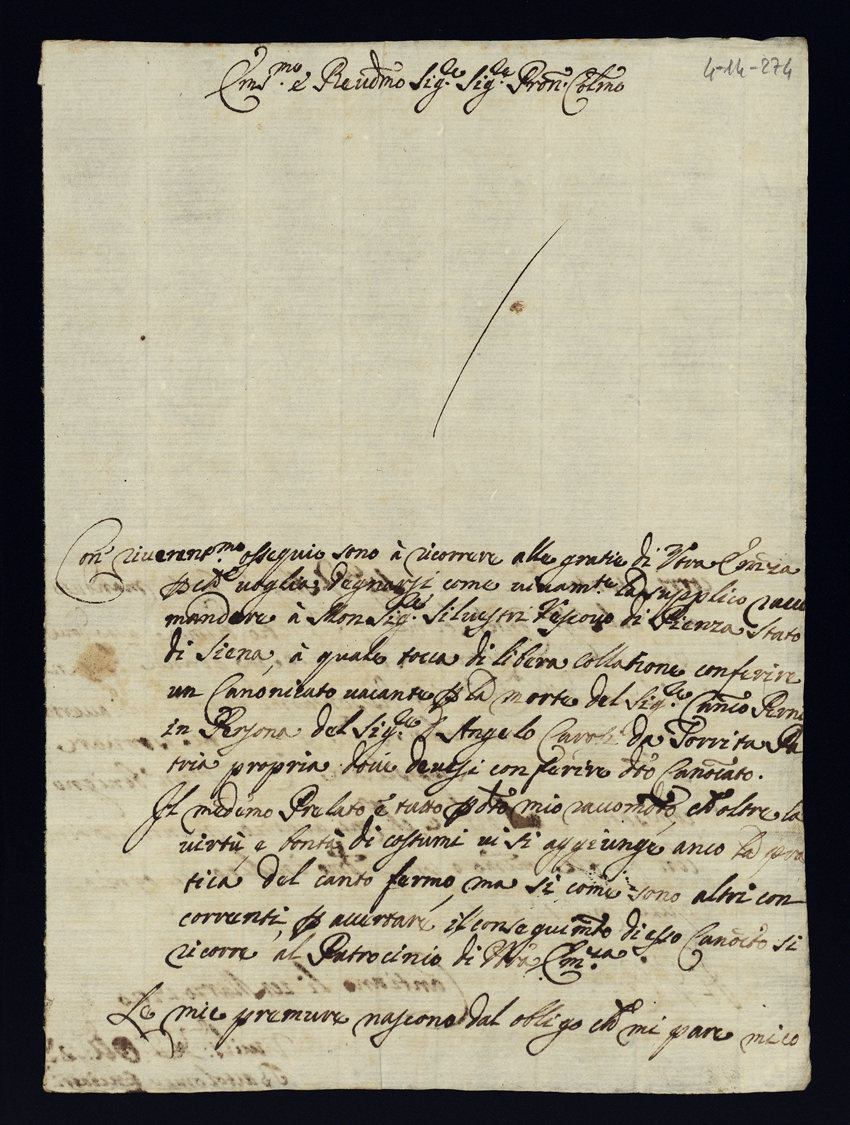 4-14-274
Em.mo e Reud.mo Sig.re Sig.re Pron. Colmo
Con riueren.mo ossequio sono à ricorrere alle gratie di Vra Emza
voglia degnarsi come uiuam.te la supplico racco
mandare à Mon Sig.re Siluestri Vescouo di Pienza Stato
di Siena, à quale tocca di libera collatione conferire
un Canonicato uacante p la morte del Sig.re Canco
in Persona del Sig.re D Angelo Caroli da Torrita Pa
tria propria doue deuesi conferire dto Canocato.
Il medemo Prelato è tutto p dto mio raccomdto, ch oltre la
virtù, e bontà di costumi ui si aggiunge anco la pra
tica del canto fermo, ma si come sono altri con
correnti, p accertare il conseguimto di esso Canocto si
ricorre al Patrocinio di Vra Em.za.
Le mie premure nascono dal obligo ch mi pare mi co